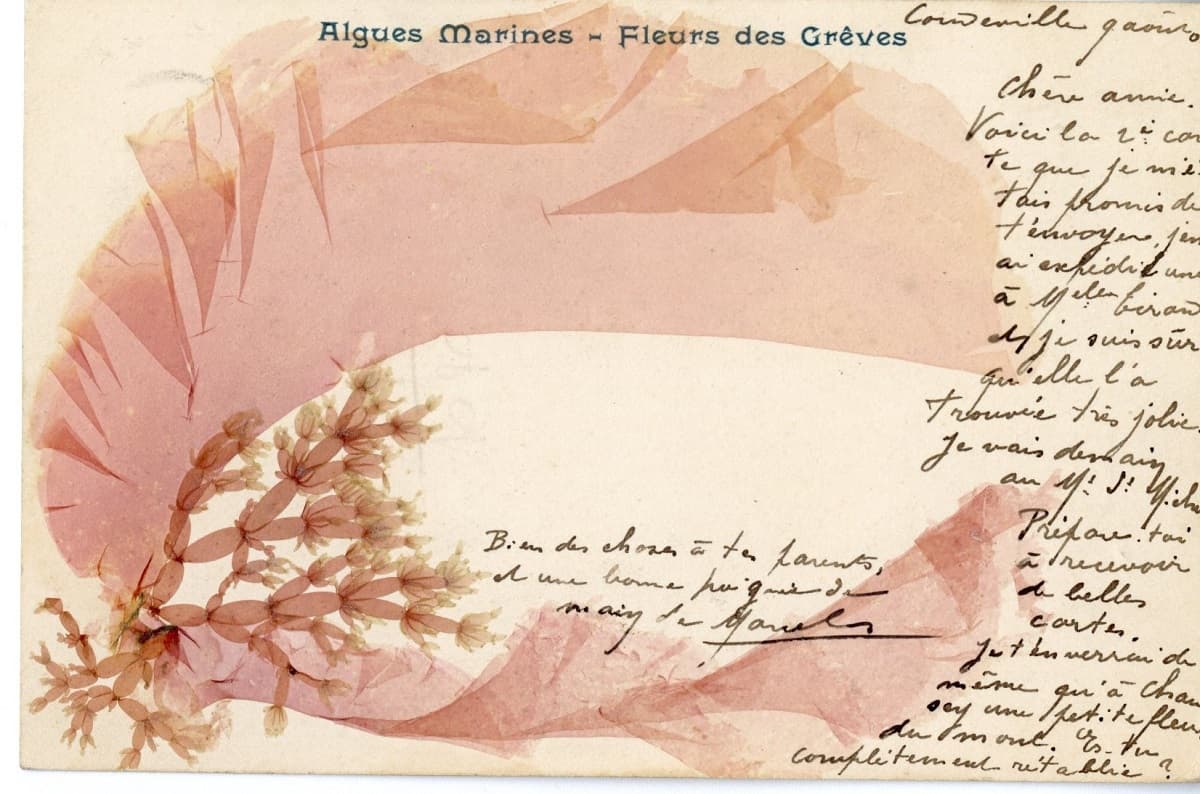 Algues Marines - Fleurs des Grêves
Chère amie.
Voici la 2e car
te que je m'é
tais promis de
t'envoyer, j'en
ai expédié une
à Melle
et je suis sûr
qu'elle l'a
trouvée très jolie.
Je vais demain
au Mt St Miche
Prépare-toi
à recevoir
de belles
cartes.
Je t'enverrai de
même qu'à Chan
sey une petite fleur
du mont. Es-tu
complètement rétablie ?
Bien des choses à tes parents,
et une bonne poignée de
main de